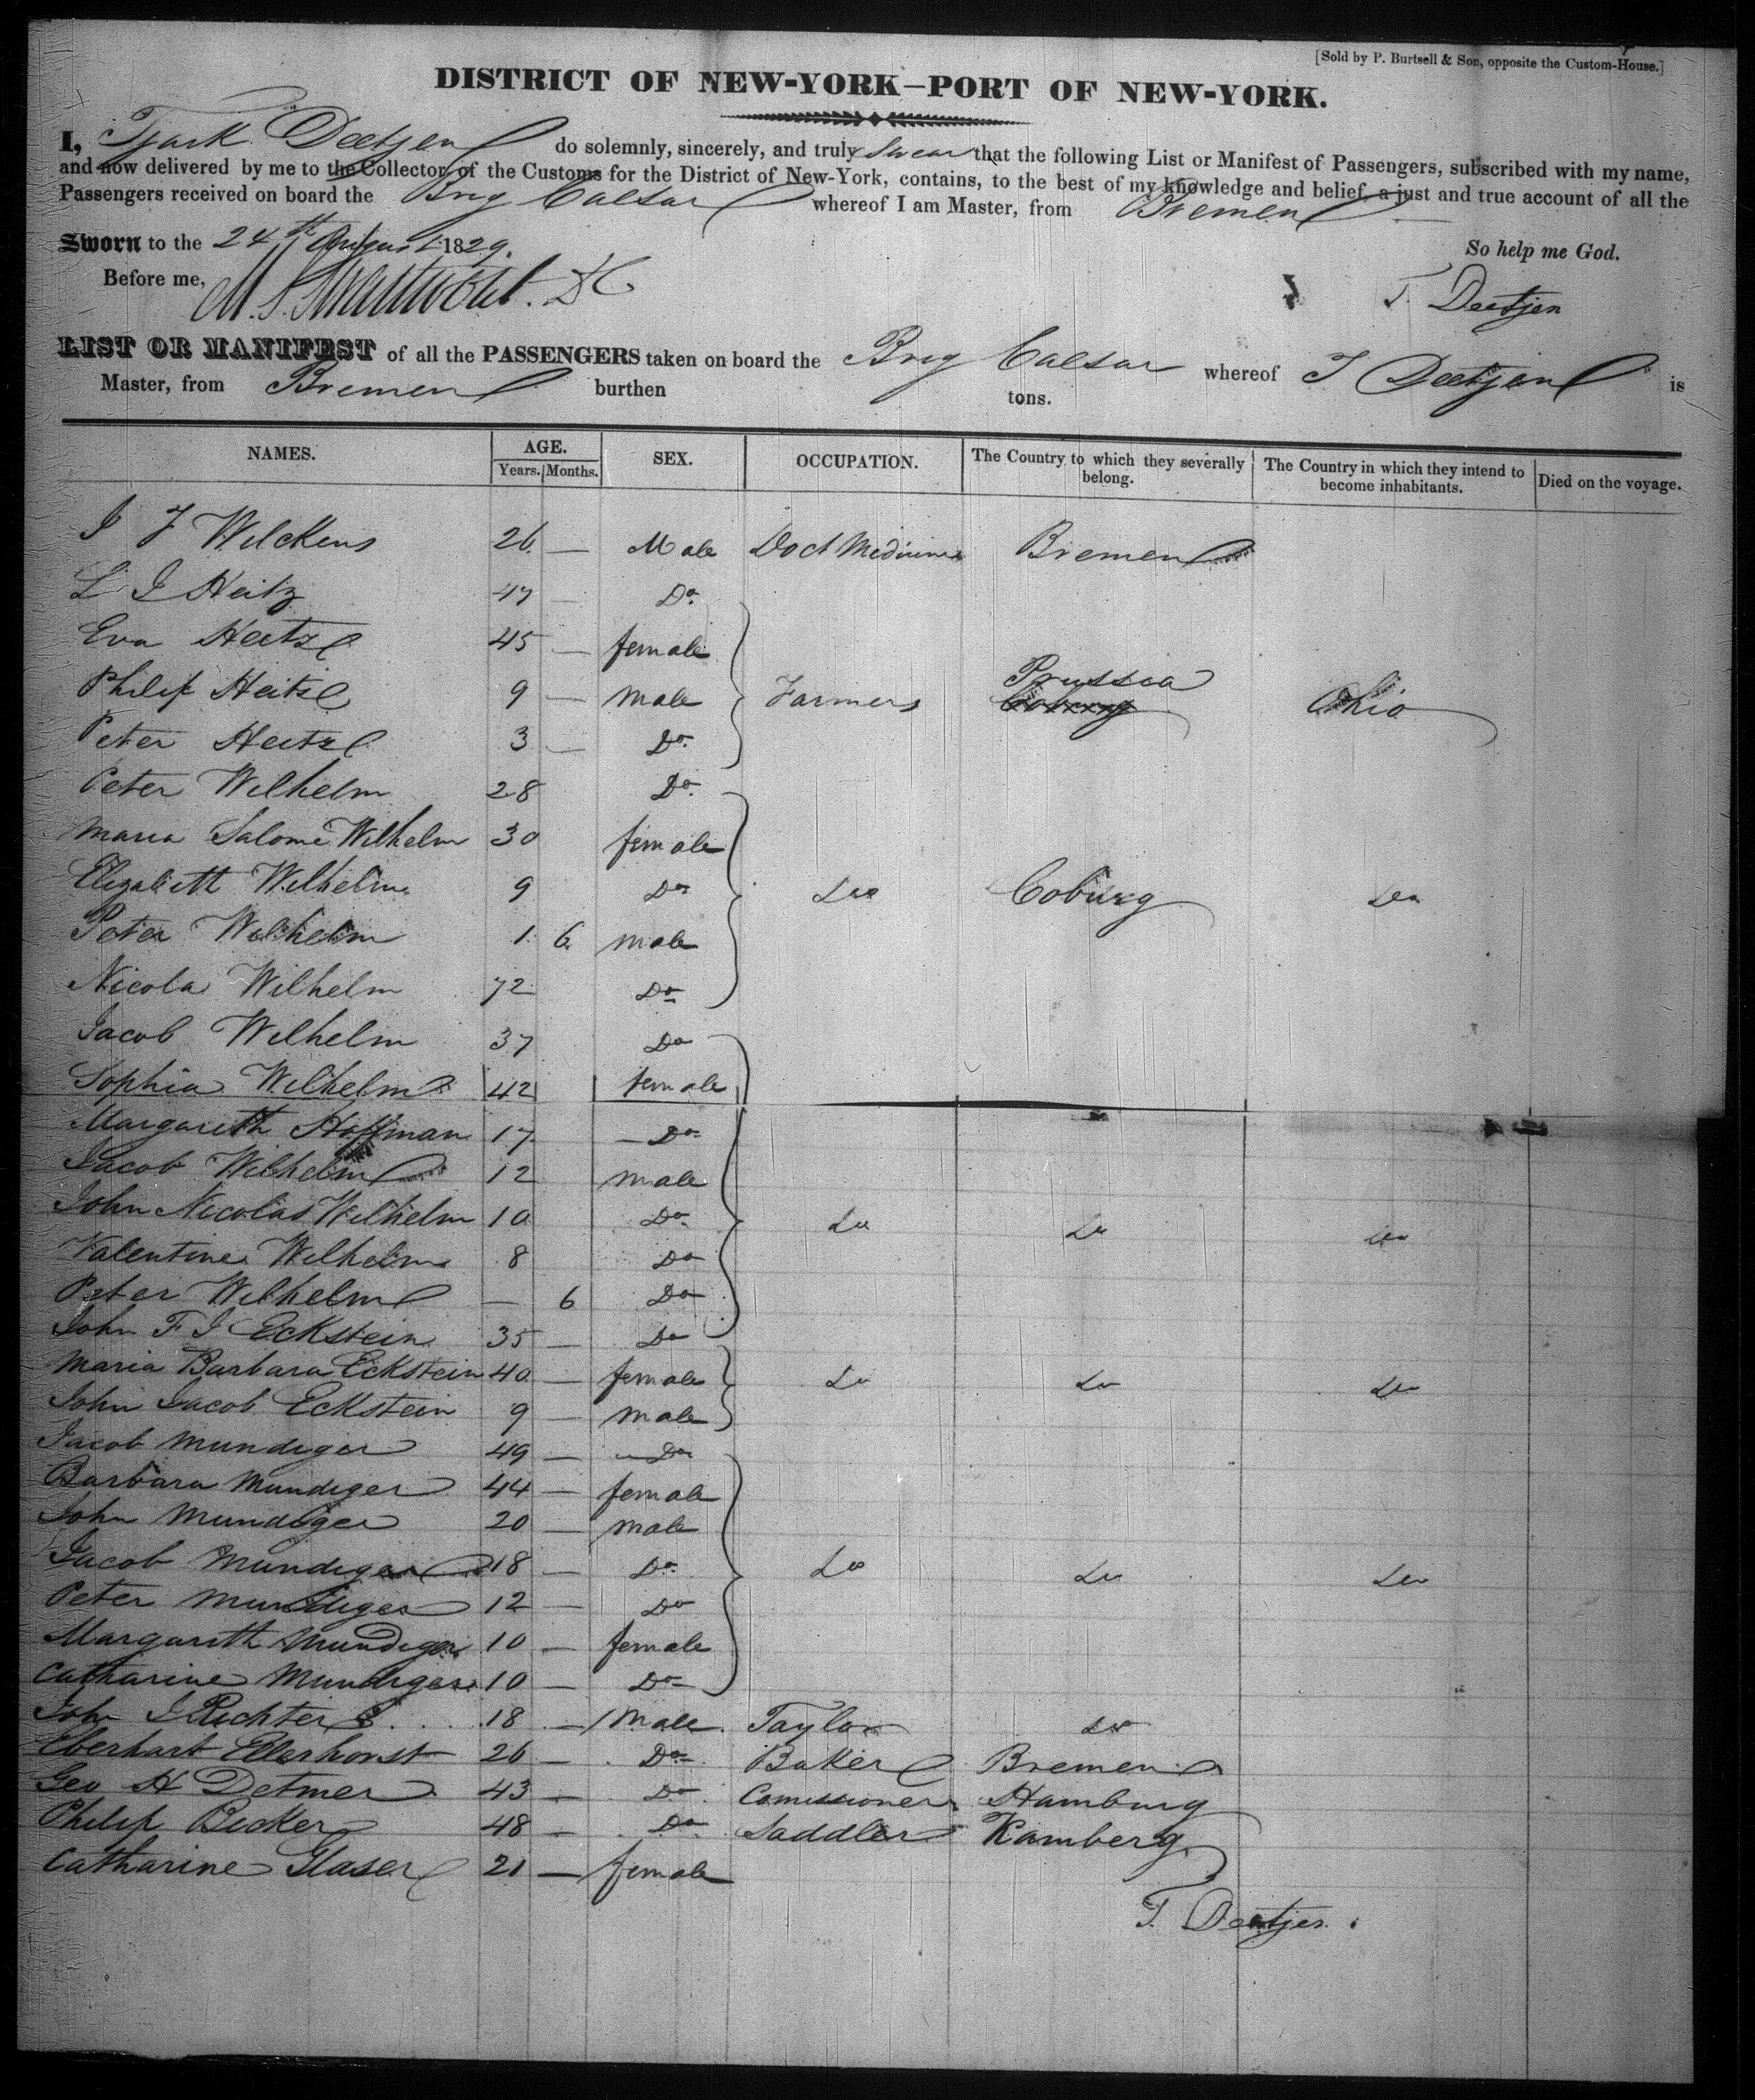 [Sold by P. Burtsell & Son, opposite the Custom-House.]
DISTRICT OF NEW-YORK–PORT OF NEW-YORK.
I, Tjark Deetjen do solemnly, sincerely, and truly Swear that the following List or Manifest of Passengers, subscribed with my name,
and now delivered by me to the Collector of the Customs for the District of New-York, contains, to the best of my knowledge and belief, a just and true account of all the
Passengers received on board the Brig Caesar whereof I am Master, from Bremen
Sworn to the 24th August 1829. So help me God.
Before me, T. Deetjen
LIST OR MANIFEST of all the PASSENGERS taken on board the Brig Caesar whereof T Deetjen is
Master, from Bremen burthen tons.
NAMES. AGE. Years. Months. SEX. OCCUPATION. The Country to which they severally belong. The Country in which they intend to become inhabitants. Died on the voyage.
J F Wilckens 26 — Male Doct Medicine Bremen
L J Heitz 47 — Do
Eva Heitz 45 — female
Philip Heitz 9 — male Farmers Prussia Coburg Ohio
Peter Heitz 3 — Do
Peter Wilhelm 28 Do
Maria Salome Wilhelm 30 female
Elizabeth Wilhelm 9 Do Do Coburg Do
Peter Wilhelm 1 6 male
Nicola Wilhelm 72 Do
Jacob Wilhelm 37 Do
Sophia Wilhelm 42 female
Margareth Hoffman 17 Do
Jacob Wilhelm 12 male
John Nicolas Wilhelm 10 Do Do Do Do
Valentine Wilhelm 8 Do
Peter Wilhelm — 6 Do
John F J Eckstein 35 — Do
Maria Barbara Eckstein 40 — female Do Do Do
John Jacob Eckstein 9 — male
Jacob Mundiger 49 — Do
Barbara Mundiger 44 — female
John Mundiger 20 — male
Jacob Mundiger 18 — Do Do Do Do
Peter Mundiger 12 — Do
Margareth Mundiger 10 — female
Catharine Mundiger 10 — Do
John J Richter 18 — Male Taylor Do
Eberhart Ellerhorst 26 — Do Baker Bremen
Geo H Detmer 43 — Do Comissioner Hamburg
Philip Becker 48 — Do Saddler Kamberg
Catharine Glaser 21 — female
T. Deetjen